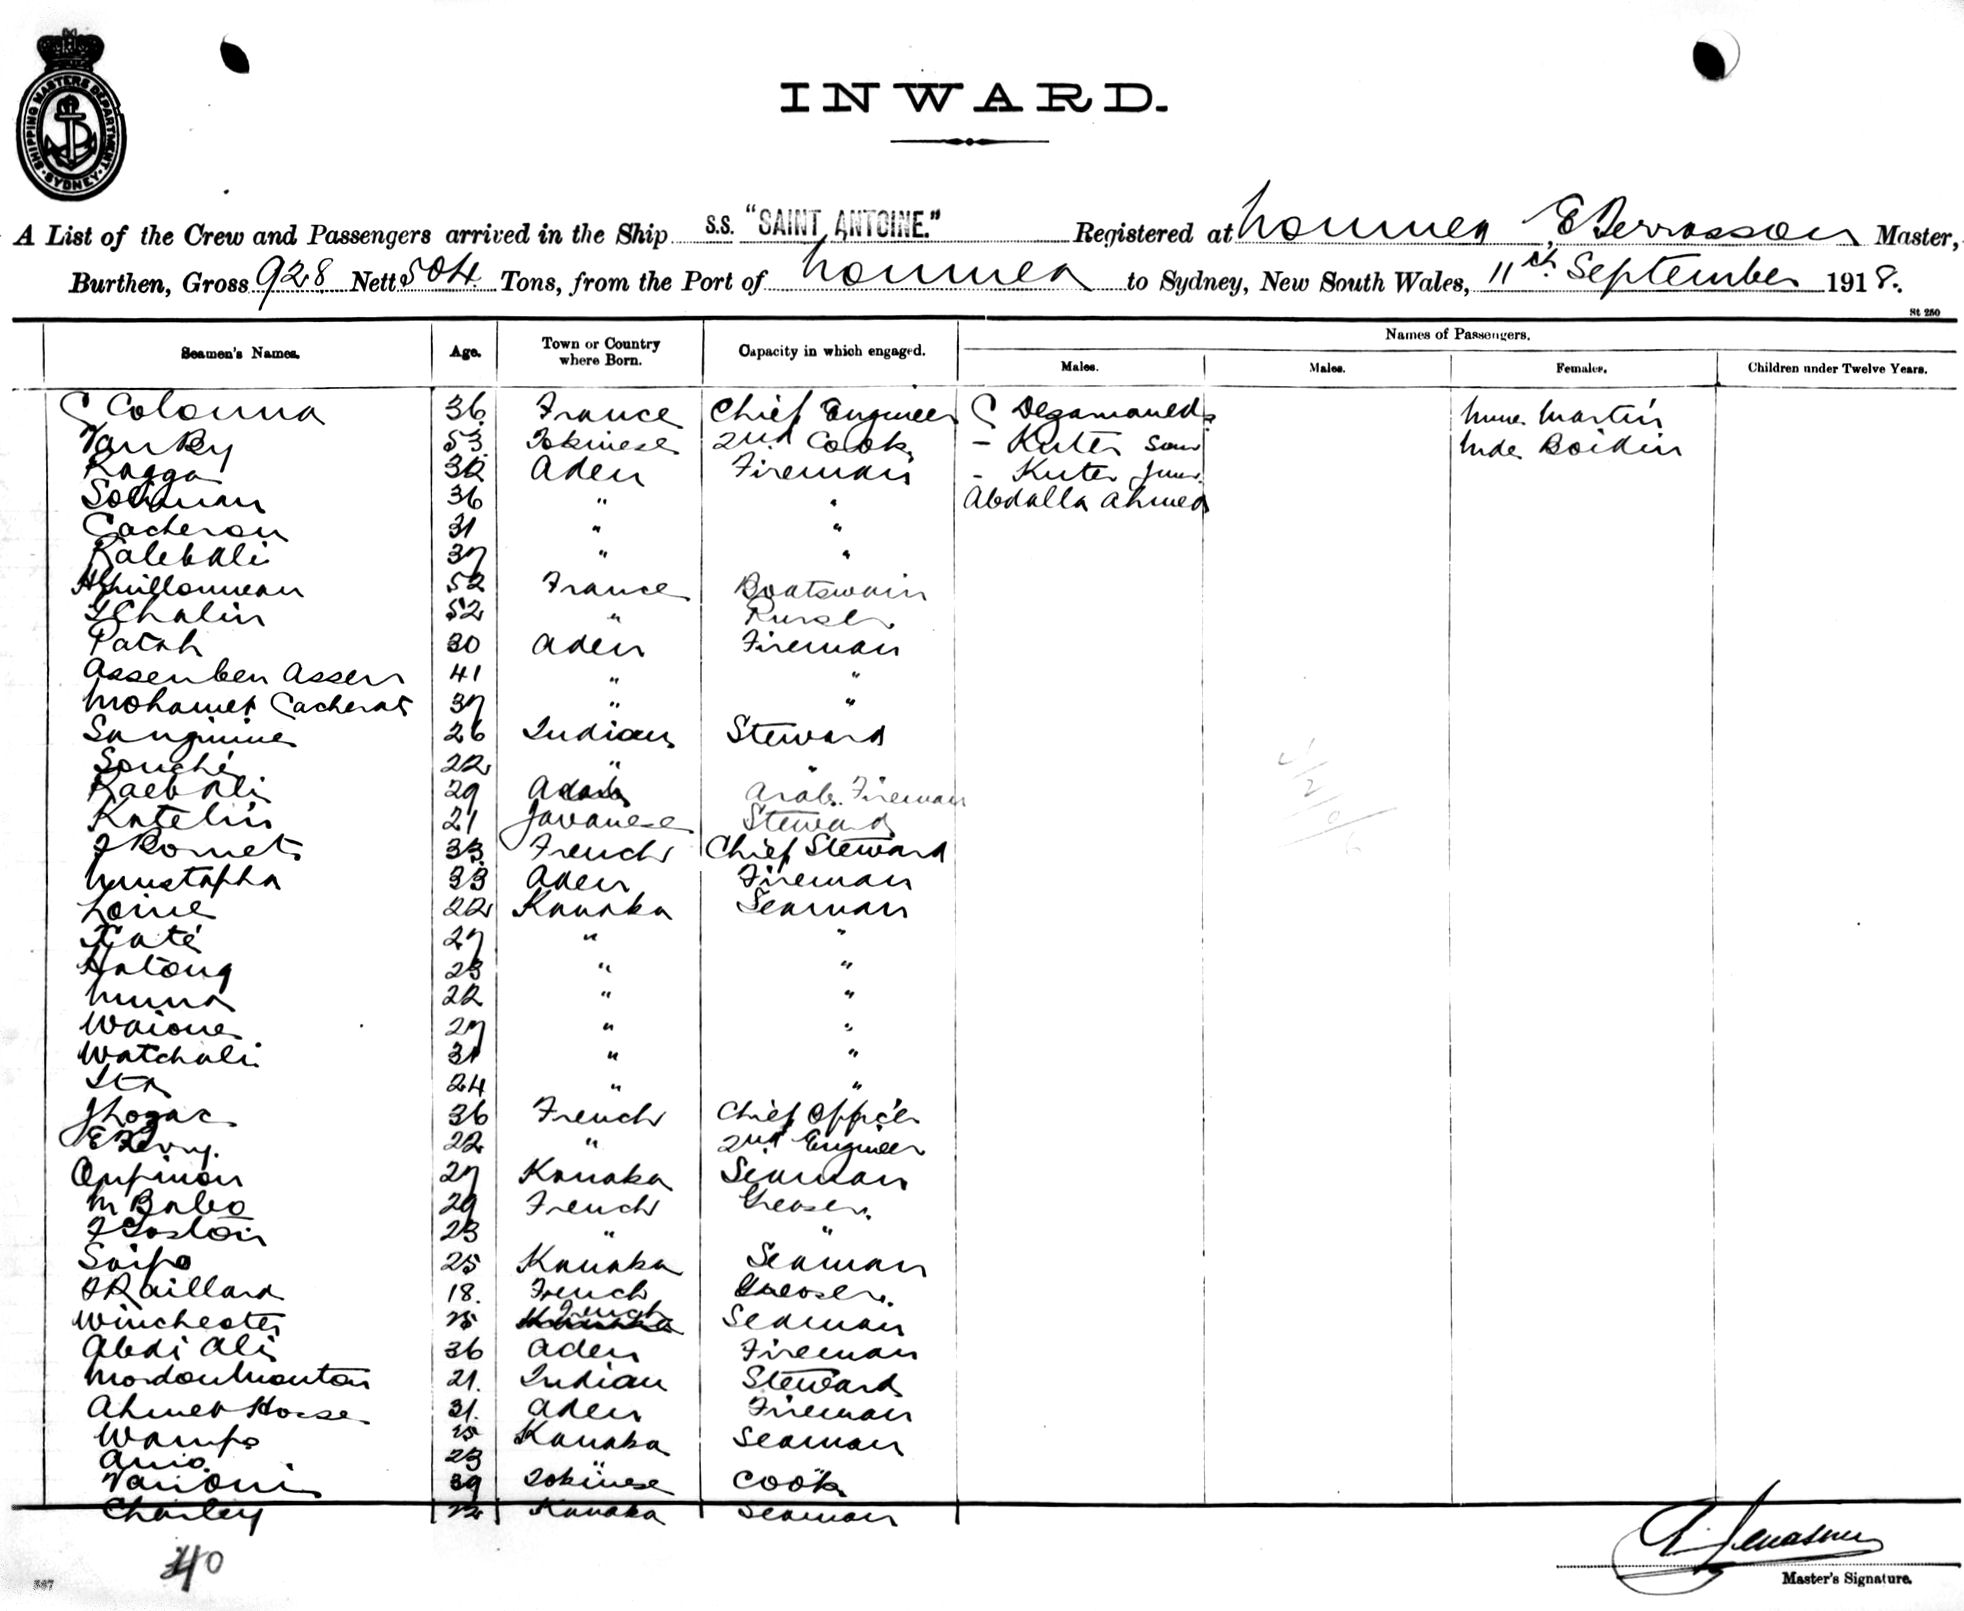 SHIPPING MASTERS DEPARTMENT
SYDNEY
INWARD.
A List of the Crew and Passengers arrived in the Ship S.S. "SAINT ANTOINE." Registered at Noumea E Terrasson Master,
Burthen, Gross 928 Nett 504 Tons, from the Port of Noumea to Sydney, New South Wales, 11th September 1918.
St 250
Seamen's Names. Age. Town or Country where Born. Capacity in which engaged. Names of Passengers.
Males. Males. Females. Children under Twelve Years.
C Colonna 36 France Chief Engineer C Mme Martin
Van Ky 53 Tokinese 2nd Cook - Kuter Senr Mde Boidin
Ragga 32 Aden Fireman - Kuter Junr
Soliman 36 " " Abdalla Ahmed
Cacheron 31 " "
Kalebali 37 " "
H Guillonneau 52 France Boatswain
Chalin 52 " Purser
Patah 30 Aden Fireman
Assenben Assen 41 " "
Mohamet Cacherat 37 " "
Sanguinne 26 Indian Steward
Souché 22 " "
Kaeb Ali 29 Arab. Fireman
Katelin 21 Javanese Steward
J Romet 33 French Chief Steward
Moustapha 33 Aden Fireman
Loine 22 Kanaka Seaman
Katé 27 " "
Hatong 23 " "
Muna 22 " "
Waione 27 " "
Watchali 31 " "
Ita 24 " "
36 French Chief Officer
22 " 2nd Engineer
27 Kanaka Seaman
M Babo 29 French Greaser
23 " "
Saipo 25 Kanaka Seaman
Raillard 18. French Greaser.
Winchester 25 French Seaman
Abdi Ali 36 Aden Fireman
21. Indian Steward
Ahmet Hosse 31. Aden Fireman
Wampo 25 Kanaka Seaman
Anio 23 " "
39 Tokinese Cook
Charley 22 Kanaka Seaman
40
Master's Signature.